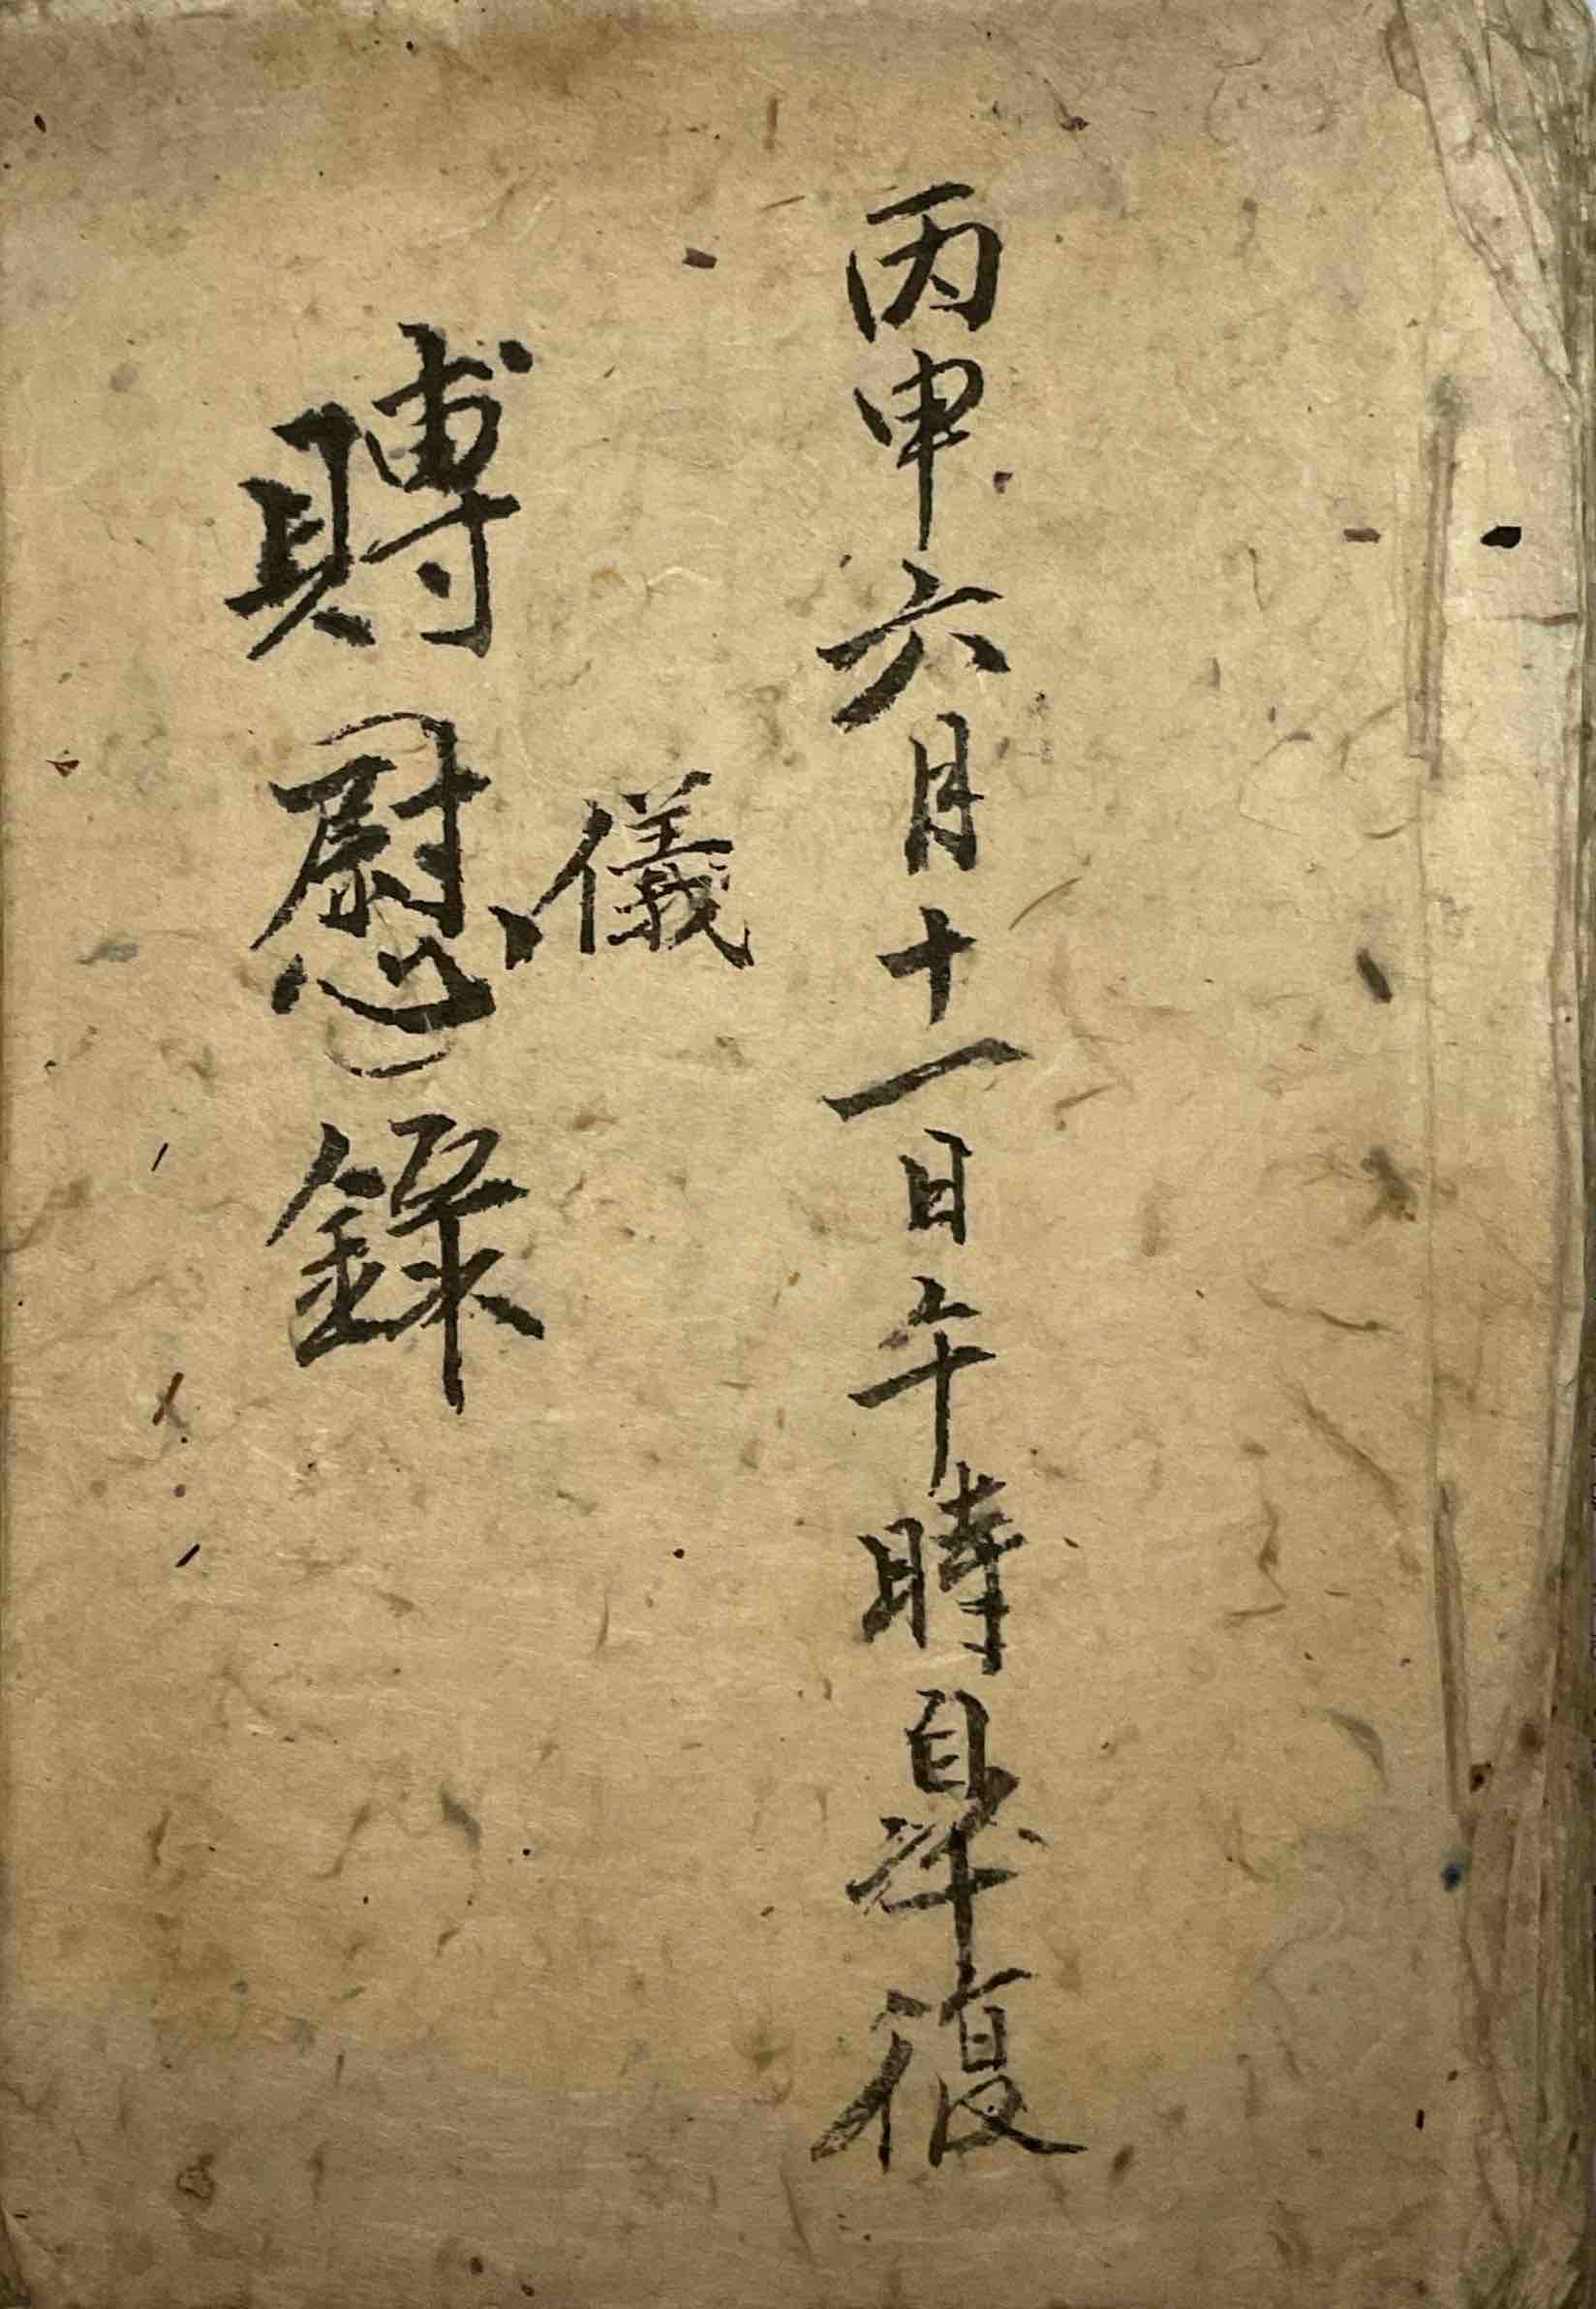 丙申六月十一日午時皐復
儀
賻慰錄